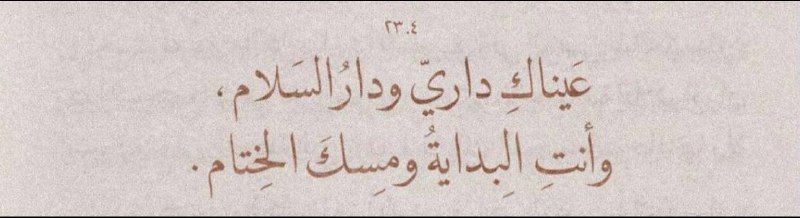 ٢٣.٤
عَيناكِ داريّ ودارُ السَلام،
وأنتِ الِبدايةُ ومِسكَ الخِتام.